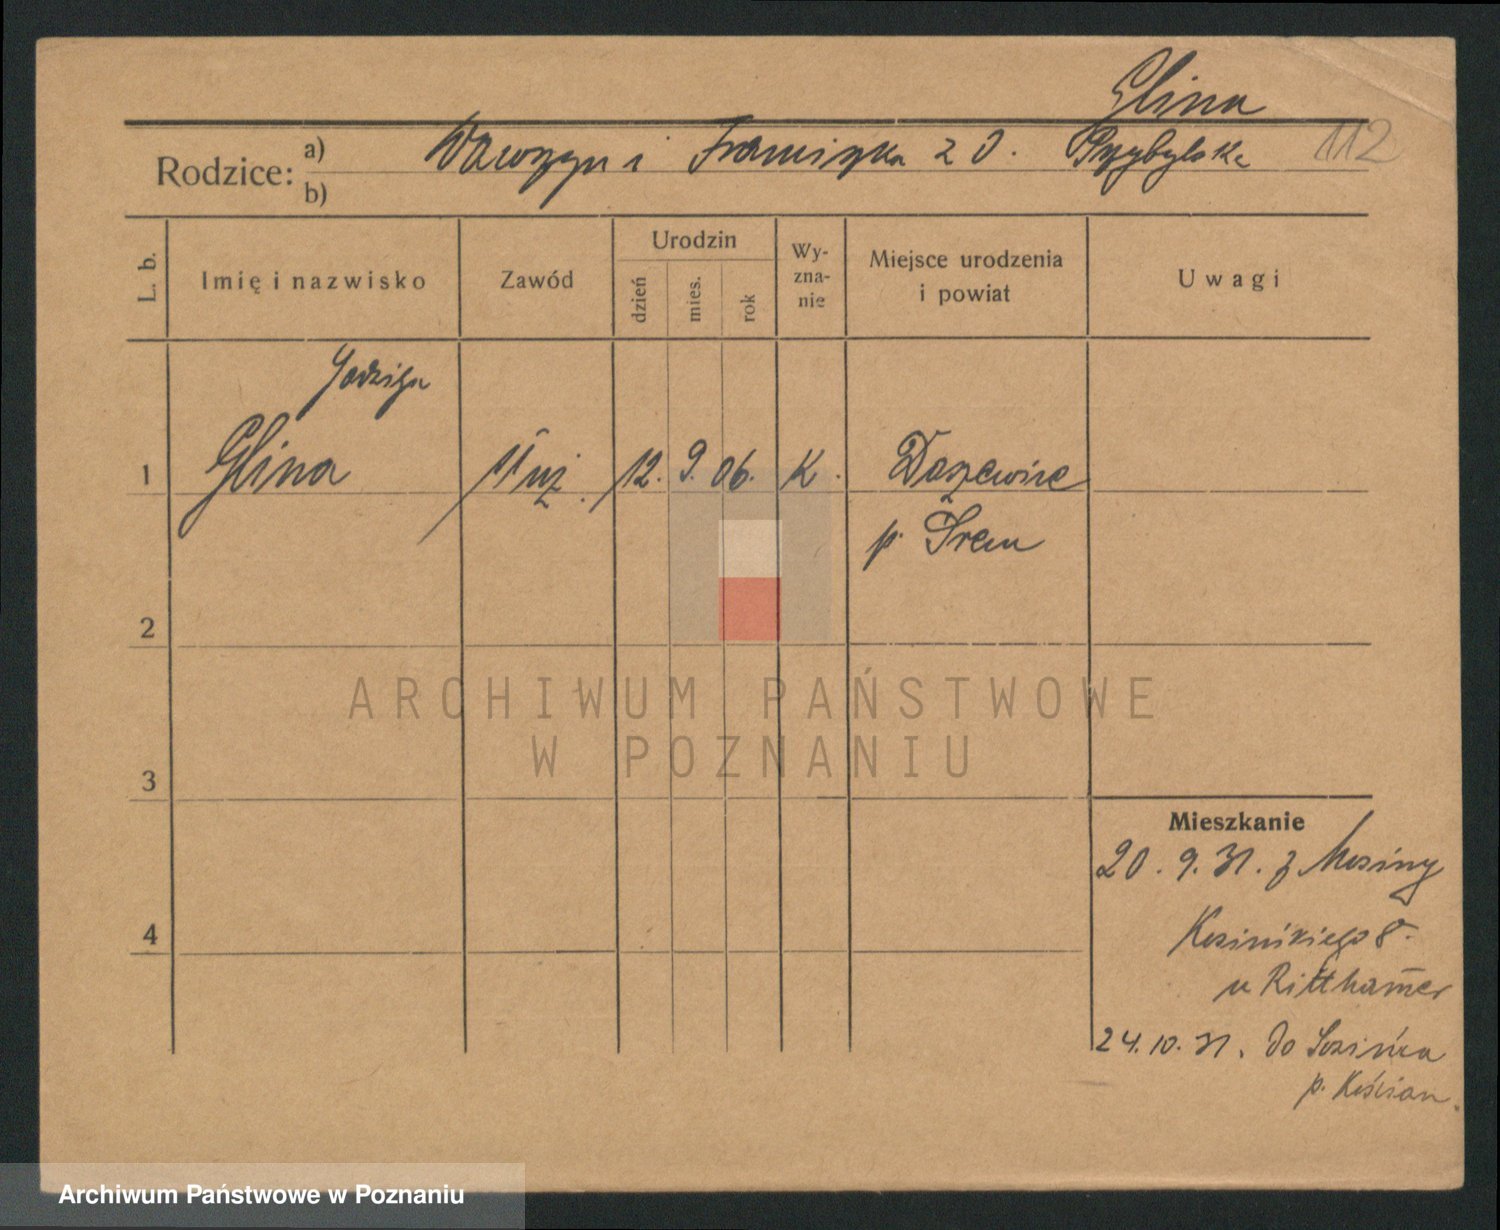 Glina
Rodzice: a) Wawrzyn i Franciszka z d. Przybylska 112
b)
L. b. Imię i nazwisko Zawód Urodzin dzień mies. rok Wy-zna-nie Miejsce urodzenia i powiat Uwagi
Jadwiga
1 Glina służ. 12. 9. 06. K. Daszewice
p. Śrem
2
ARCHIWUM PAŃSTWOWE
W POZNANIU
3
Mieszkanie
20. 9. 31. z Mosiny
4
Kosińskiego 8.
u Ritthamer
24. 10. 31. do
p. Kościan.
Archiwum Państwowe w Poznaniu